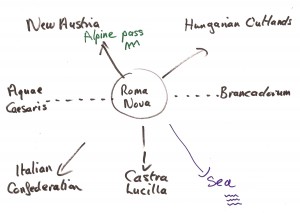 New Austria
Hungarian Outlands
Alpine pass
Aquae
Caesaris
Roma
Nova
Brancadorum
Italian
Confederation
Castra
Lucilla
Sea